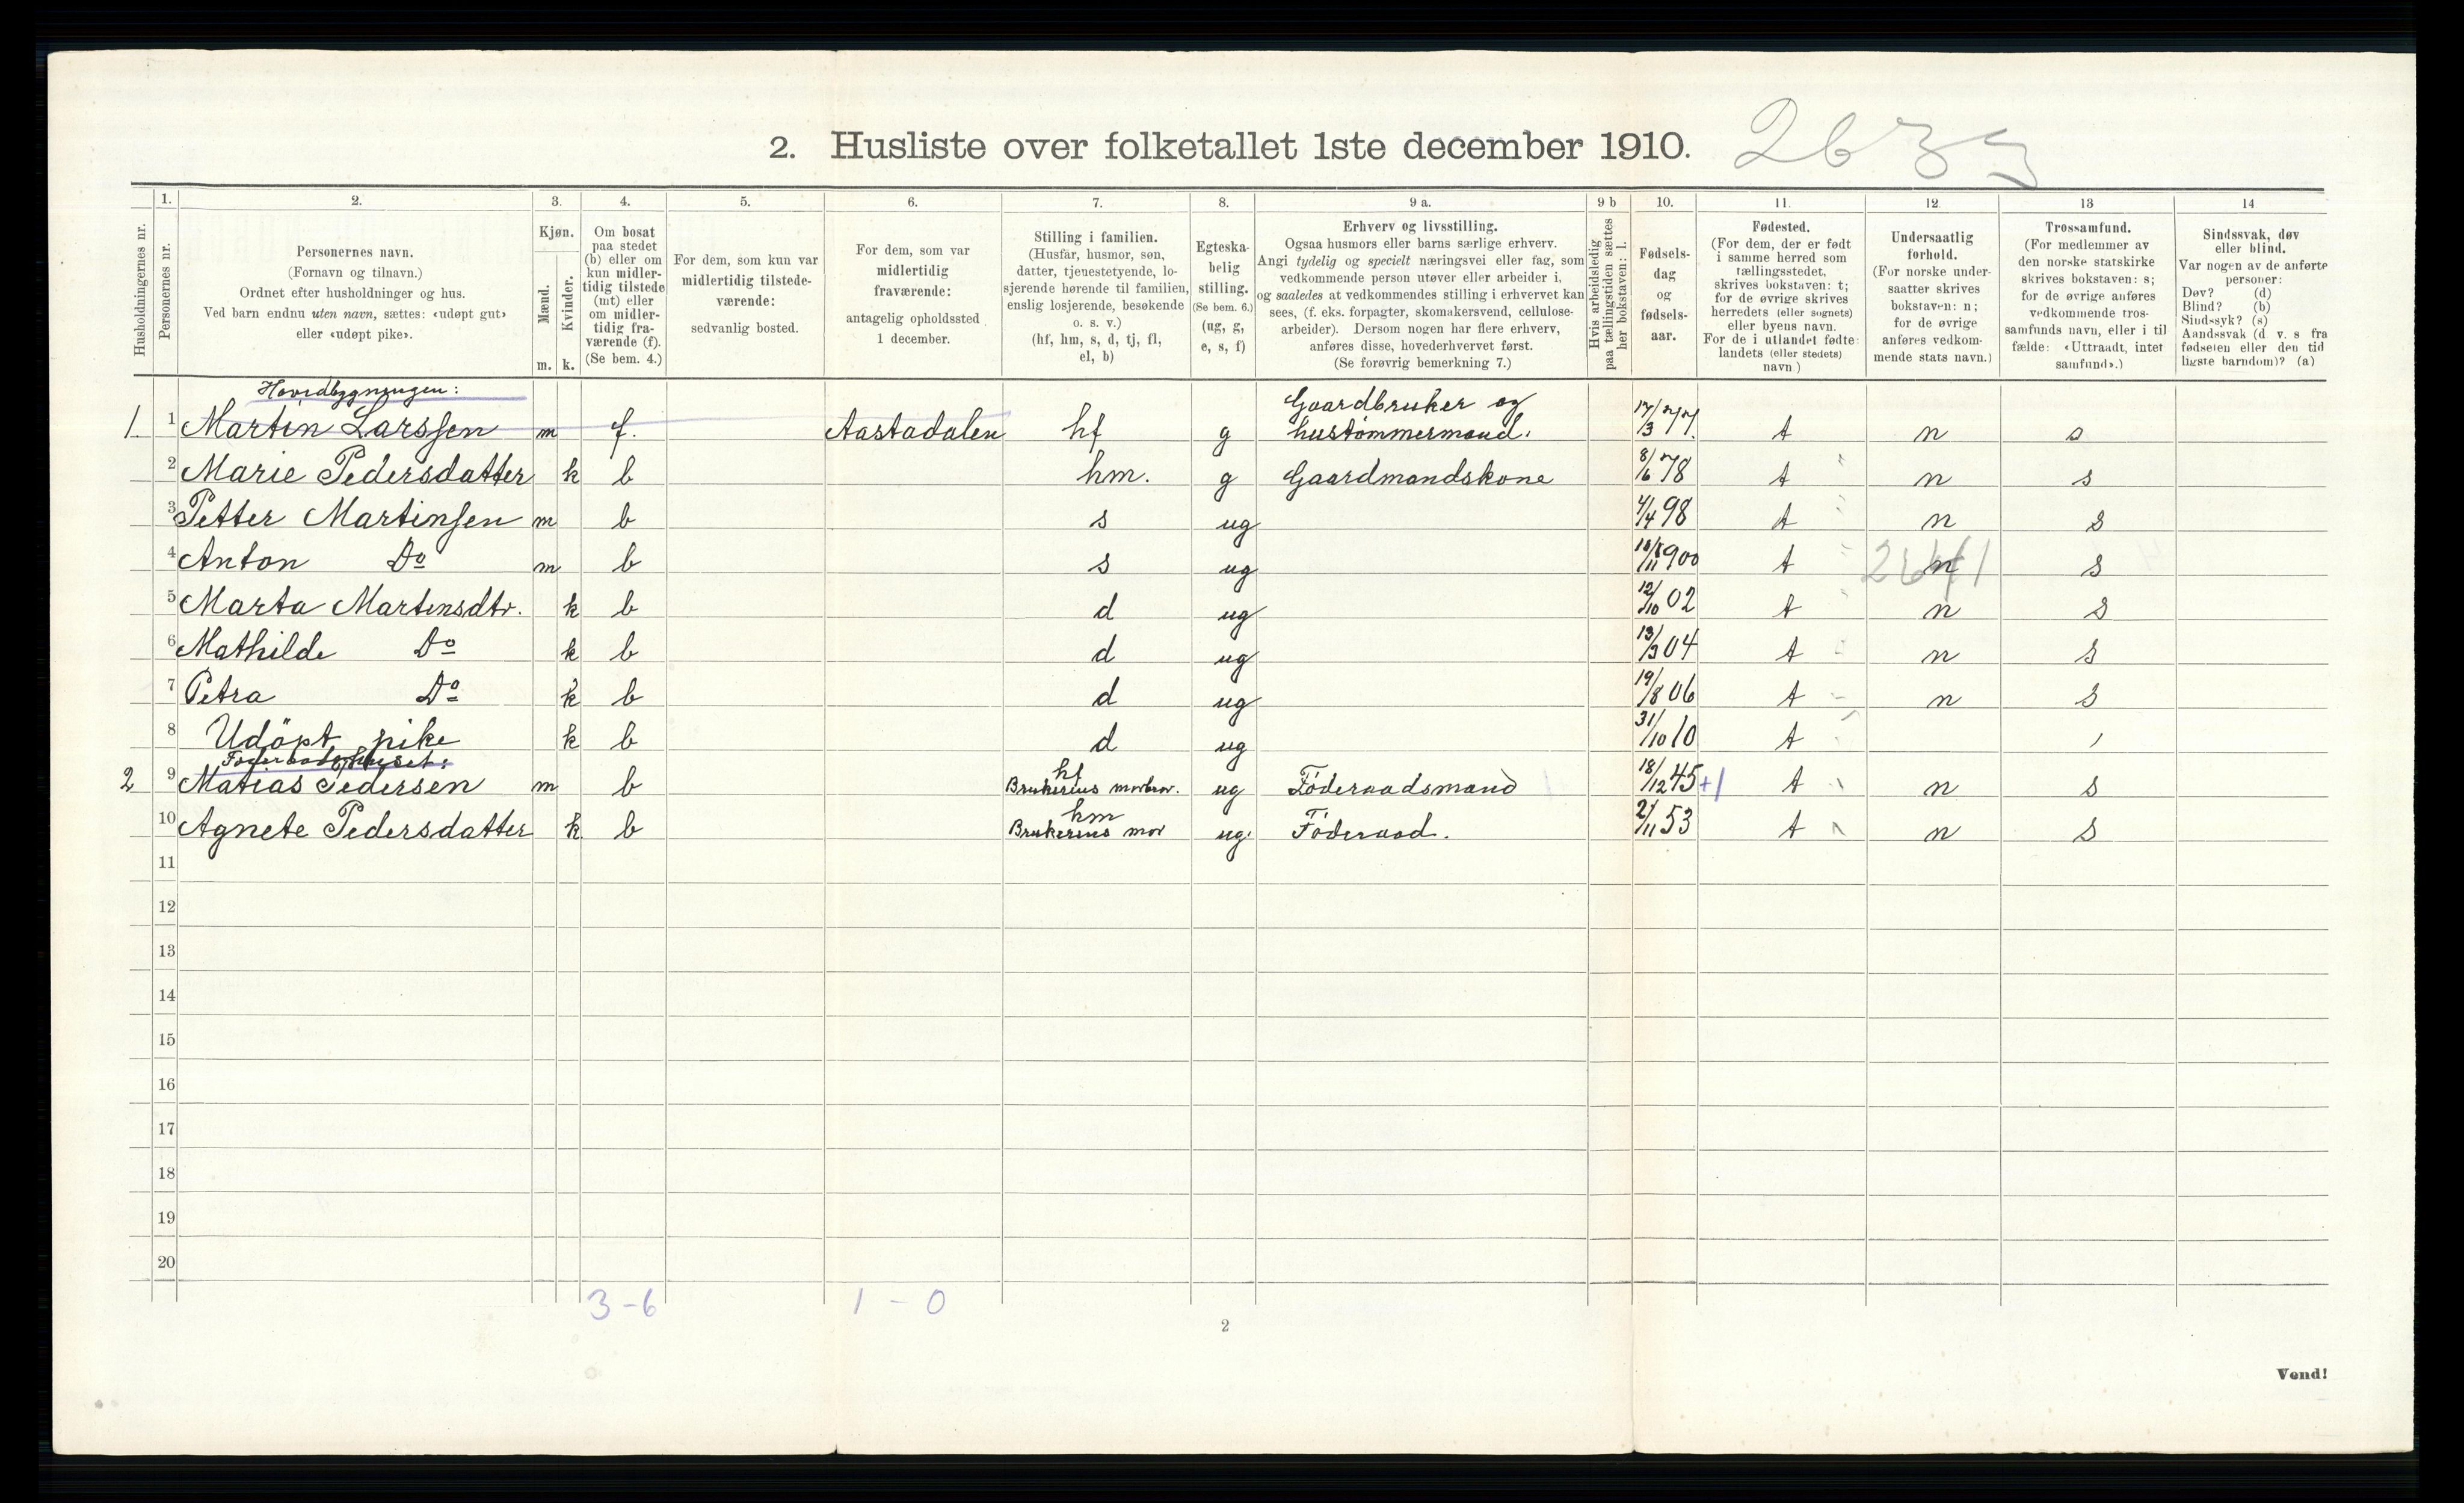 2. Husliste over folketallet 1ste december 1910.
Husholdningernes nr.
1. Personernes nr.
2. Personernes navn.
(Fornavn og tilnavn.)
Ordnet efter husholdninger og hus.
Ved barn endnu uten navn, sættes: «udøpt gut»
eller «udøpt pike».
3. Kjøn.
Mænd. m.
Kvinder. k.
4. Om bosat
paa stedet
(b) eller om
kun midler-
tidig tilstede
(mt) eller
om midler-
tidig fra-
værende (f).
(Se bem. 4.)
5. For dem, som kun var
midlertidig tilstede-
værende:
sedvanlig bosted.
6. For dem, som var
midlertidig
fraværende:
antagelig opholdssted
1 december.
7. Stilling i familien.
(Husfar, husmor, søn,
datter, tjenestetyende, lo-
sjerende hørende til familien,
enslig losjerende, besøkende
o. s. v.)
(hf, hm, s, d, tj, fl,
el, b)
8. Egteska-
belig
stilling.
(Se bem. 6.)
(ug, g,
e, s, f)
9 a. Erhverv og livsstilling.
Ogsaa husmors eller barns særlige erhverv.
Angi tydelig og specielt næringsvei eller fag, som
vedkommende person utøver eller arbeider i,
og saaledes at vedkommendes stilling i erhvervet kan
sees, (f. eks. forpagter, skomakersvend, cellulose-
arbeider). Dersom nogen har flere erhverv,
anføres disse, hovederhvervet først.
(Se forøvrig bemerkning 7.)
9 b Hvis arbeidsledig
paa tællingstiden sættes
her bokstaven: l.
10. Fødsels-
dag
og
fødsels-
aar.
11. Fødested.
(For dem, der er født
i samme herred som
tællingsstedet,
skrives bokstaven: t;
for de øvrige skrives
herredets (eller sognets)
eller byens navn.
For de i utlandet fødte:
landets (eller stedets)
navn.)
12. Undersaatlig
forhold.
(For norske under-
saatter skrives
bokstaven: n;
for de øvrige
anføres vedkom-
mende stats navn.)
13 Trossamfund.
(For medlemmer av
den norske statskirke
skrives bokstaven: s;
for de øvrige anføres
vedkommende tros-
samfunds navn, eller i til
fælde: «Uttraadt, intet
samfund».)
14 Sindssvak, døv
eller blind.
Var nogen av de anførte
personer:
Døv? (d)
Blind? (b)
Sindssyk? (s)
Aandssvak (d. v. s fra
fødselen eller den tid
ligste barndom)? (a)
Hovedbygningen:
1. 1 Martin Larssen m f. Aastadalen hf g Gaardbruker og hustømmermand. 17/3 77 t n s
2 Marie Pedersdatter k b hm. g Gaardmandskone 8/6 78 t n s
3 Petter Martinsen m b s ug 4/4 98 t n s
4 Anton Do m b s ug 900 t n s
5 Marta Martinsdtr. k b d ug 12/10 02 t n s
6 Mathilde Do k b d ug 13/3 04 t n s
7 Petra Do k b d ug 19/8 06 t n s
8 Udöpt pike k b d ug 31/10 10 t
2 9 Matias Pedersen m b hf Brukerens morbror. ug Föderaadsmand 18/12 45 +1 t n s
10 Agnete Pedersdatter k b hm Brukerens mor ug. Föderaad. 2/11 53 t n s
11
12
13
14
15
16
17
18
19
20
3-6 1-0
2
Vend!